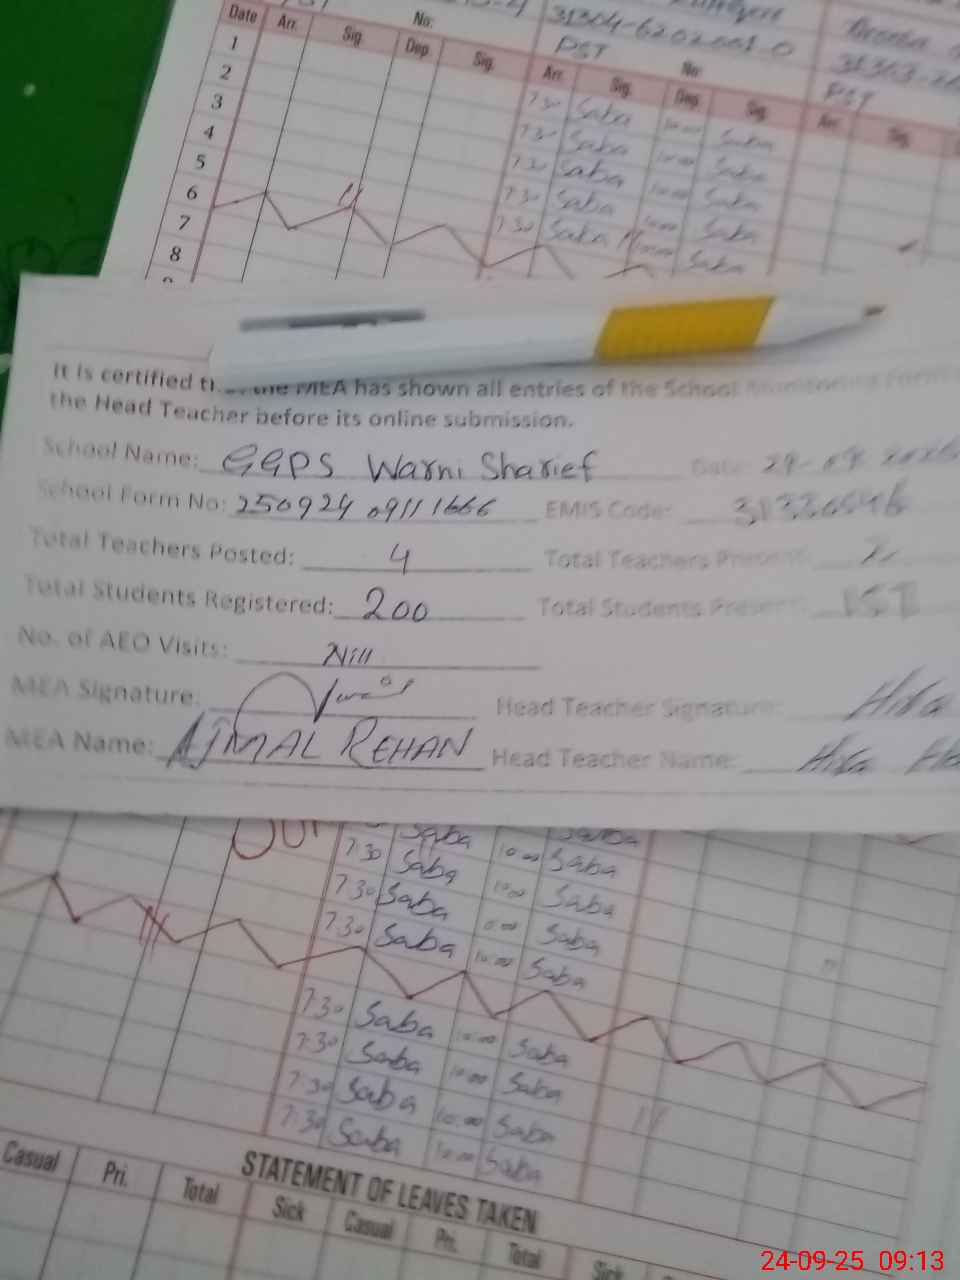 Date Arr. No: Sig. Dep. Sig.
31304-6202661-0
PST
No:
PST
Arr. Sig. Dep. Sig. Arr. Sig.
1
2
3 7:30 Saba 10:00 Saba
4 7:30 Saba 10:00 Saba
5 7:30 Saba 10:00 Saba
6 7:30 Saba 10:00 Saba
7 7:30 Saba 10:00 Saba
8
It is certified the MEA has shown all entries of the School Monitoring Form
the Head Teacher before its online submission.
School Name: GGPS Warni Sharief Date:
School Form No: 250924 09111666 EMIS Code:
Total Teachers Posted: 4 Total Teachers Present: 2
Total Students Registered: 200 Total Students Present:
No. of AEO Visits: Nill
MEA Signature: Head Teacher Signature: Hifa
MEA Name: AJMAL REHAN Head Teacher Name: Hifa
Saba Saba
7:30 Saba 10:00 Saba
7:30 Saba 10:00 Saba
7:30 Saba 10:00 Saba
Saba
7:30 Saba 10:00 Saba
7:30 Saba 10:00 Saba
7:30 Saba 10:00 Saba
7:30 Saba 10:00 Saba
STATEMENT OF LEAVES TAKEN
Casual Pri. Total Sick Casual Pri. Total Sick
24-09-25 09:13